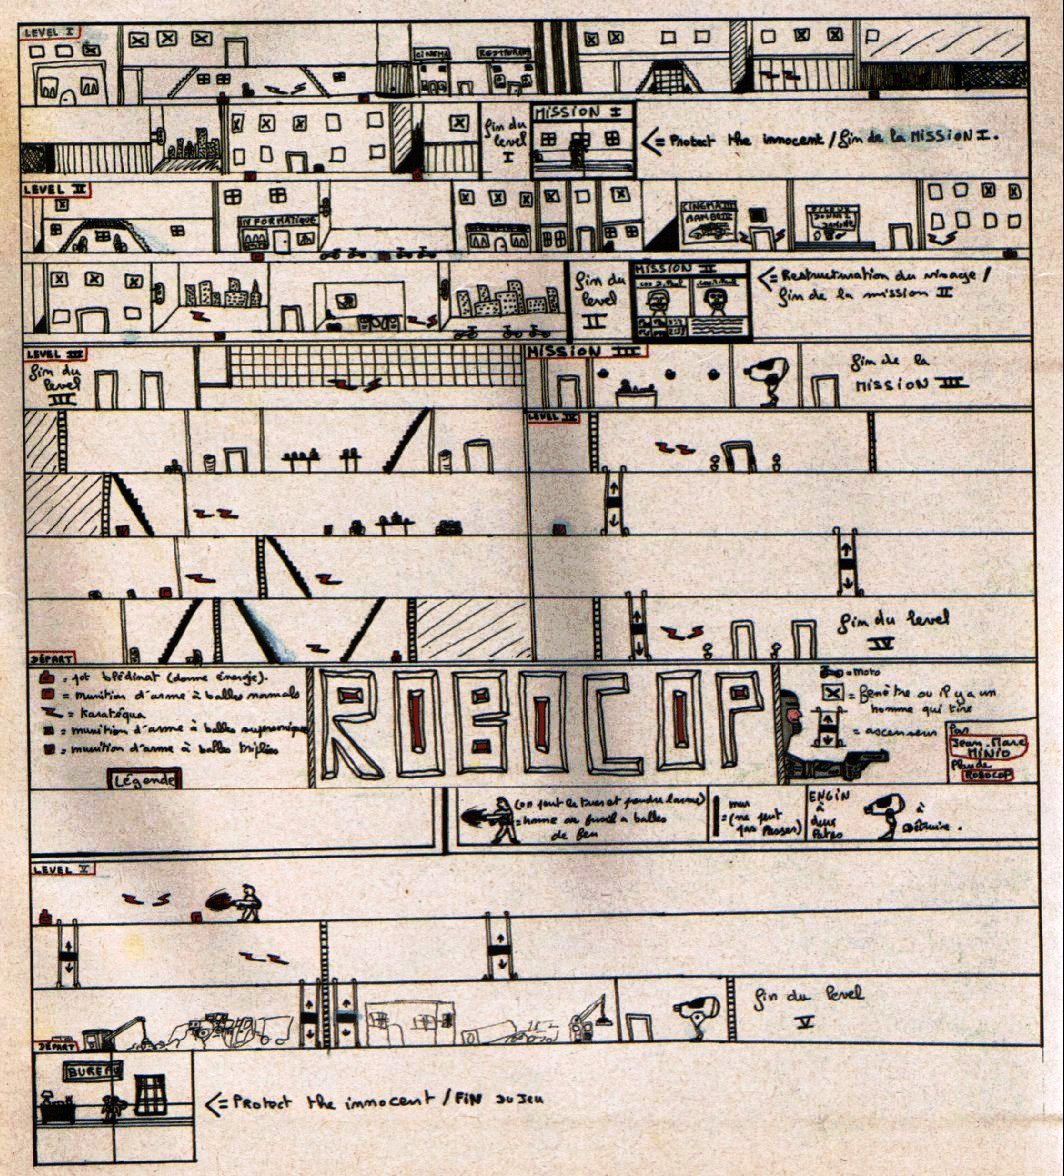 LEVEL I
CINÉMA
RESTAURANT
fin du
level
I
MISSION I
<= Protect the innocent / fin de la MISSION I.
LEVEL II
INFORMATIQUE
CINEMA III
RAMBO III
fin du
level
II
MISSION II
<= Restructuration du visage /
fin de la mission II
LEVEL III
fin du
level
III
MISSION III
fin de la
MISSION III
LEVEL IV
fin du level
IV
DÉPART
= pot blédinat (donne énergie).
= munition d'arme à balles normals
= Karatéqua
= munition d'arme à balles supronique
= munition d'arme à balles triplées
Légende
ROBOCOP
= moto
= fenêtre ou il y a un
homme qui tire
= ascenseur
Par
Jean-Marc
MINIO
Plan de
ROBOCOP
(on peut les tuer et prendre l'arme)
= home au fusil a balles
de feu
mur
= (ne peut
pas passer)
ENGIN
à
deux
Pates
à
détruire.
LEVEL V
fin du level
V
DÉPART
BUREAU
<= Protect the innocent / FIN du JEU